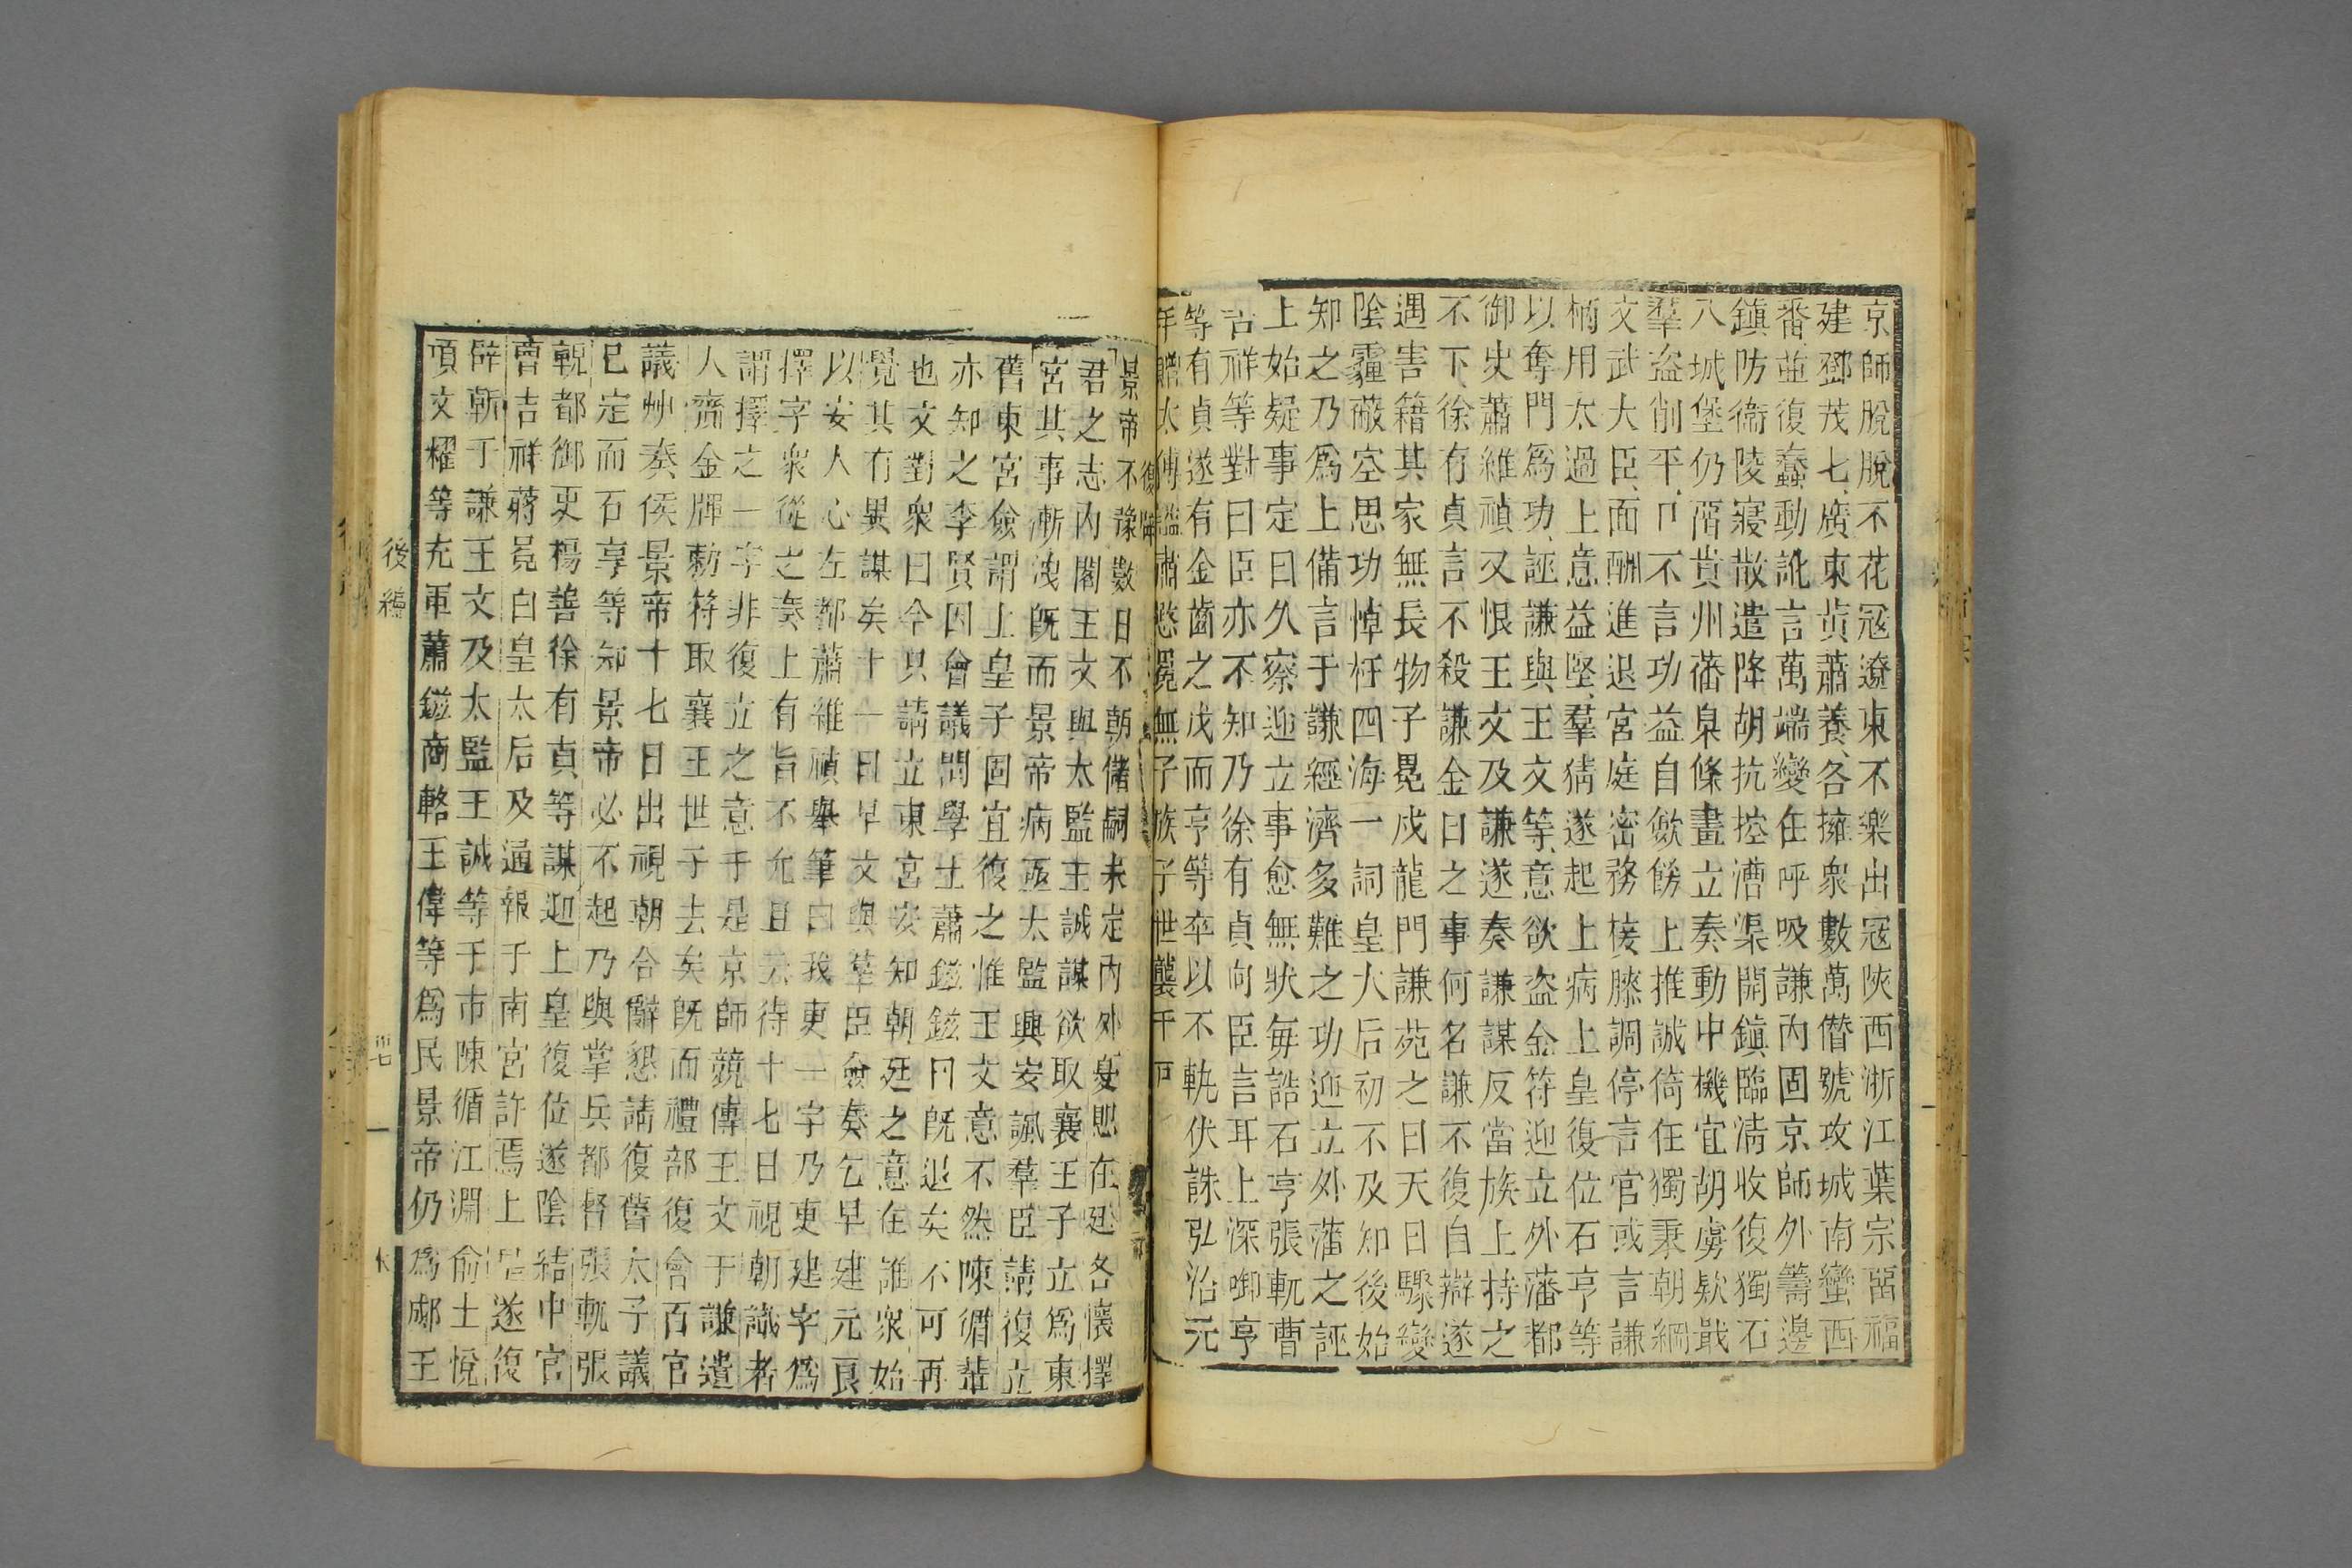 京師脫脫不花寇遼東不樂出寇陝西浙江葉宗畱福
建鄧茂七廣東黃蕭養各擁衆數萬僭號攻城南蠻西
番並復蠢動訛言萬端變在呼吸謙內固京師外籌邊
鎮防衞陵寢散遣降胡抗控漕渠開鎮臨淸收復獨石
八城堡仍畱貴州藩臬條畫立奏動中機宜胡虜欵戢
羣盜削平口不言功益自歛餝上推誠倚任獨秉朝綱
文武大臣面酬進退宮庭密務接膝調停言官或言謙
柄用太過上意益堅羣猜遂起上病上皇復位石亨等
以奪門爲功誣謙與王文等意欲盜金符迎立外藩都
御史蕭維禎又恨王文及謙遂奏謙謀反當族上持之
不下徐有貞言不殺謙金日之事何名謙不復自辯遂
遇害籍其家無長物子冕戍龍門謙苑之日天日驟變
陰霾蔽空思功悼枉四海一詞皇大后初不及知後始
知之乃爲上備言于謙經濟多難之功迎立外藩之誣
上始疑事定曰久察迎立事愈無狀每詰石亨張軏曹
吉祥等對曰臣亦不知乃徐有貞向臣言耳上深啣亨
等有貞遂有金齒之戍而亨等卒以不軌伏誅弘治元
年贈太傅謚肅愍冕無子族子世襲千戶
復辟
景帝不豫數日不朝儲嗣未定內外憂思在廷各懷擇
君之志內閣王文與太監王誠謀欲取襄王子立爲東
宮其事漸洩旣而景帝病亟太監興安諷羣臣請復立
舊東宮僉謂上皇子固宜復之惟王文意不然陳循輩
亦知之李賢因會議問學士蕭鎡鎡曰旣退矣不可再
也文對衆曰今只請立東宮安知朝廷之意在誰衆始
覺其有異謀矣十一日早文與羣臣僉奏乞早建元良
以安人心左都蕭維禎舉筆曰我更一字乃更建字爲
擇字衆從之奏上有旨不允且云待十七日視朝識者
謂擇之一字非復立之意于是京師競傳王文于謙遣
人齎金牌勅符取襄王世子去矣旣而禮部復會百官
議艸奏俟景帝十七日出視朝合辭懇請復舊太子議
已定而石亨等知景帝必不起乃與掌兵都督張軏張
輗都御史楊善徐有貞等謀迎上皇復位遂陰結中官
曹吉祥蔣冕白皇太后及通報于南宮許焉上皇遂復
辟斬于謙王文及太監王誠等于市陳循江淵俞士悅
項文耀等充軍蕭鎡商輅王偉等爲民景帝仍爲郕王
後編